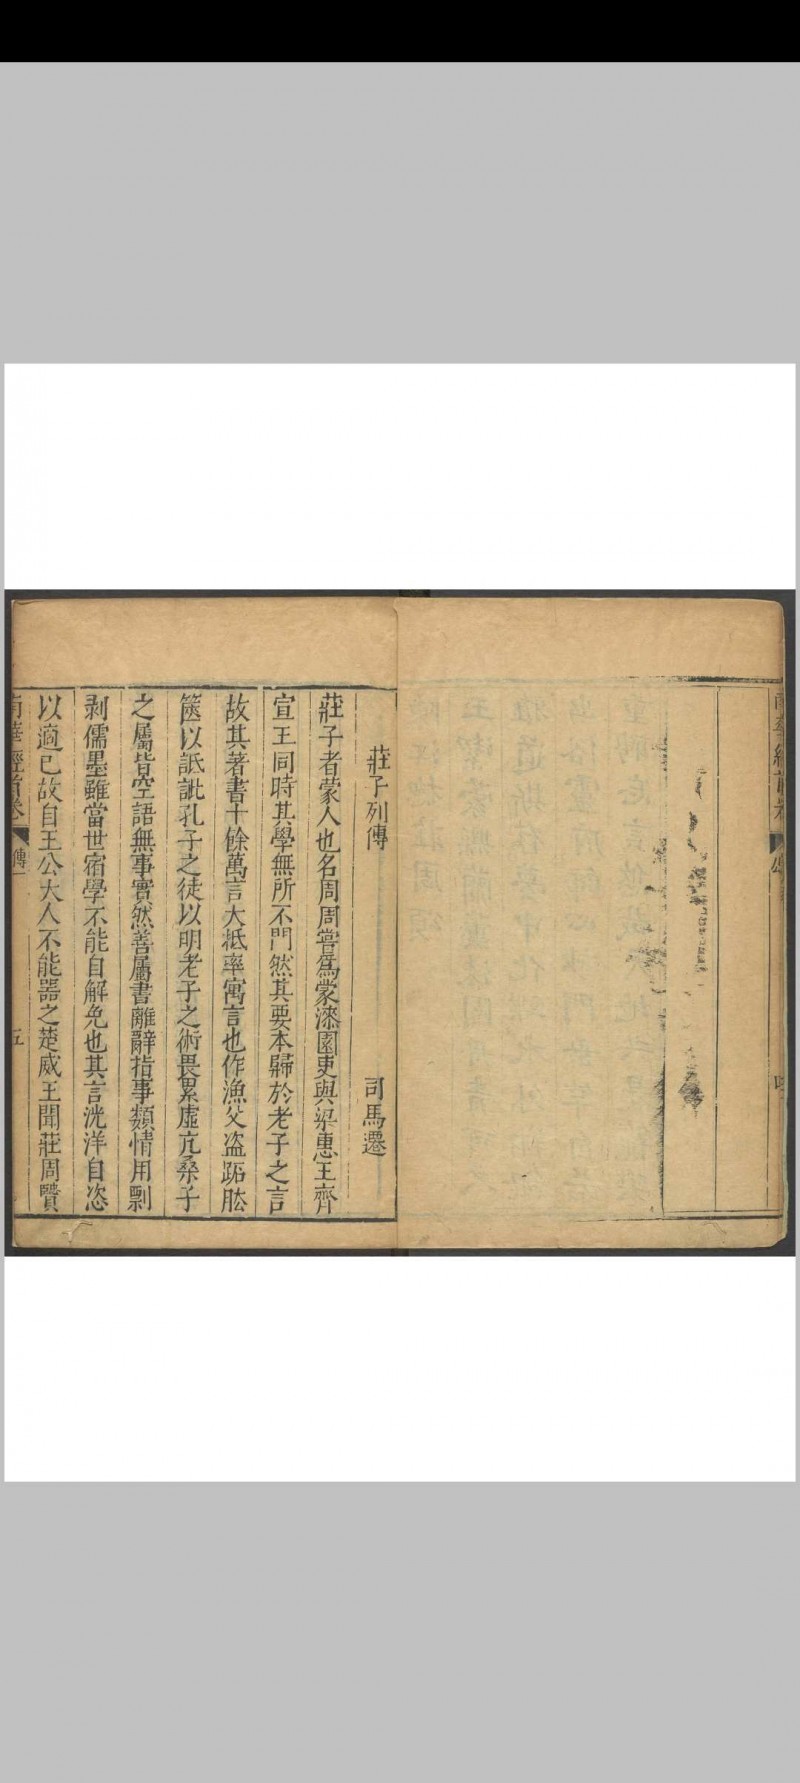 莊子列傳
司馬遷
莊子者蒙人也名周周嘗爲蒙漆園吏與梁惠王齊
宣王同時其學無所不門然其要本歸於老子之言
故其著書十餘萬言大抵率寓言也作漁父盗跖胠
篋以詆訿孔子之徒以明老子之術畏累虛亢桑子
之屬皆空語無事實然善屬書離辭指事類情用剽
剥儒墨雖當世宿學不能自解免也其言洸洋自恣
以適己故自王公大人不能器之楚威王聞莊周賢
南華經首卷
傳一
五